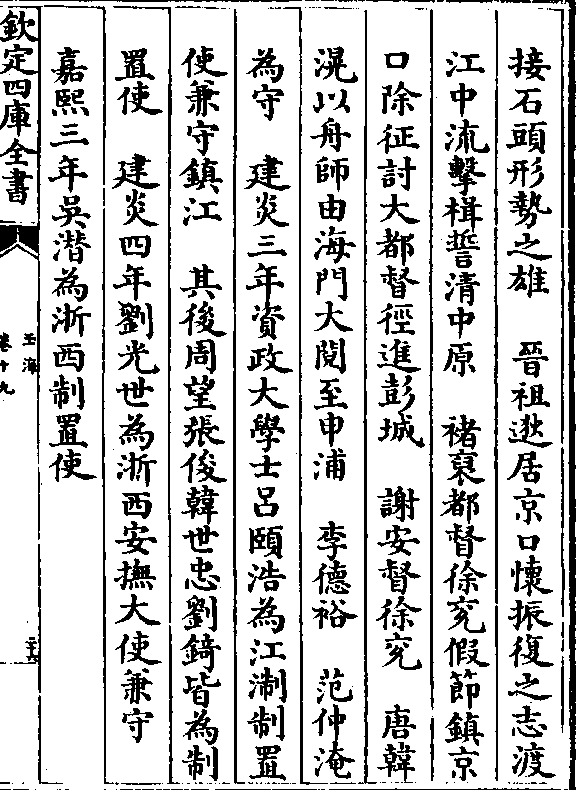 接石頭形勢之雄　晉祖逖居京口懷振復之志渡
江中流擊楫誓清中原　褚裒都督徐兗假節鎮京
口除征討大都督徑進彭城　謝安督徐兗　唐韓
滉以舟師由海門大閱至申浦　李德裕　范仲淹
為守　建炎三年資政大學士呂頤浩為江淛制置
使兼守鎮江　其後周望張俊韓世忠劉錡皆為制
置使　建炎四年劉光世為浙西安撫大使兼守
嘉熙三年吳潛為浙西制置使
欽定四庫全書
玉海
卷十九